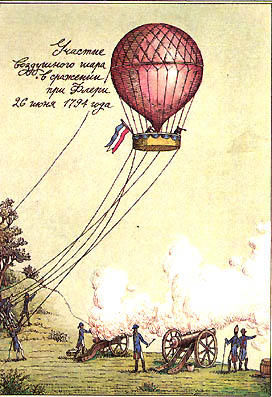 Участие
воздушного шара
в сражении
при Флери
26 июня 1794 года